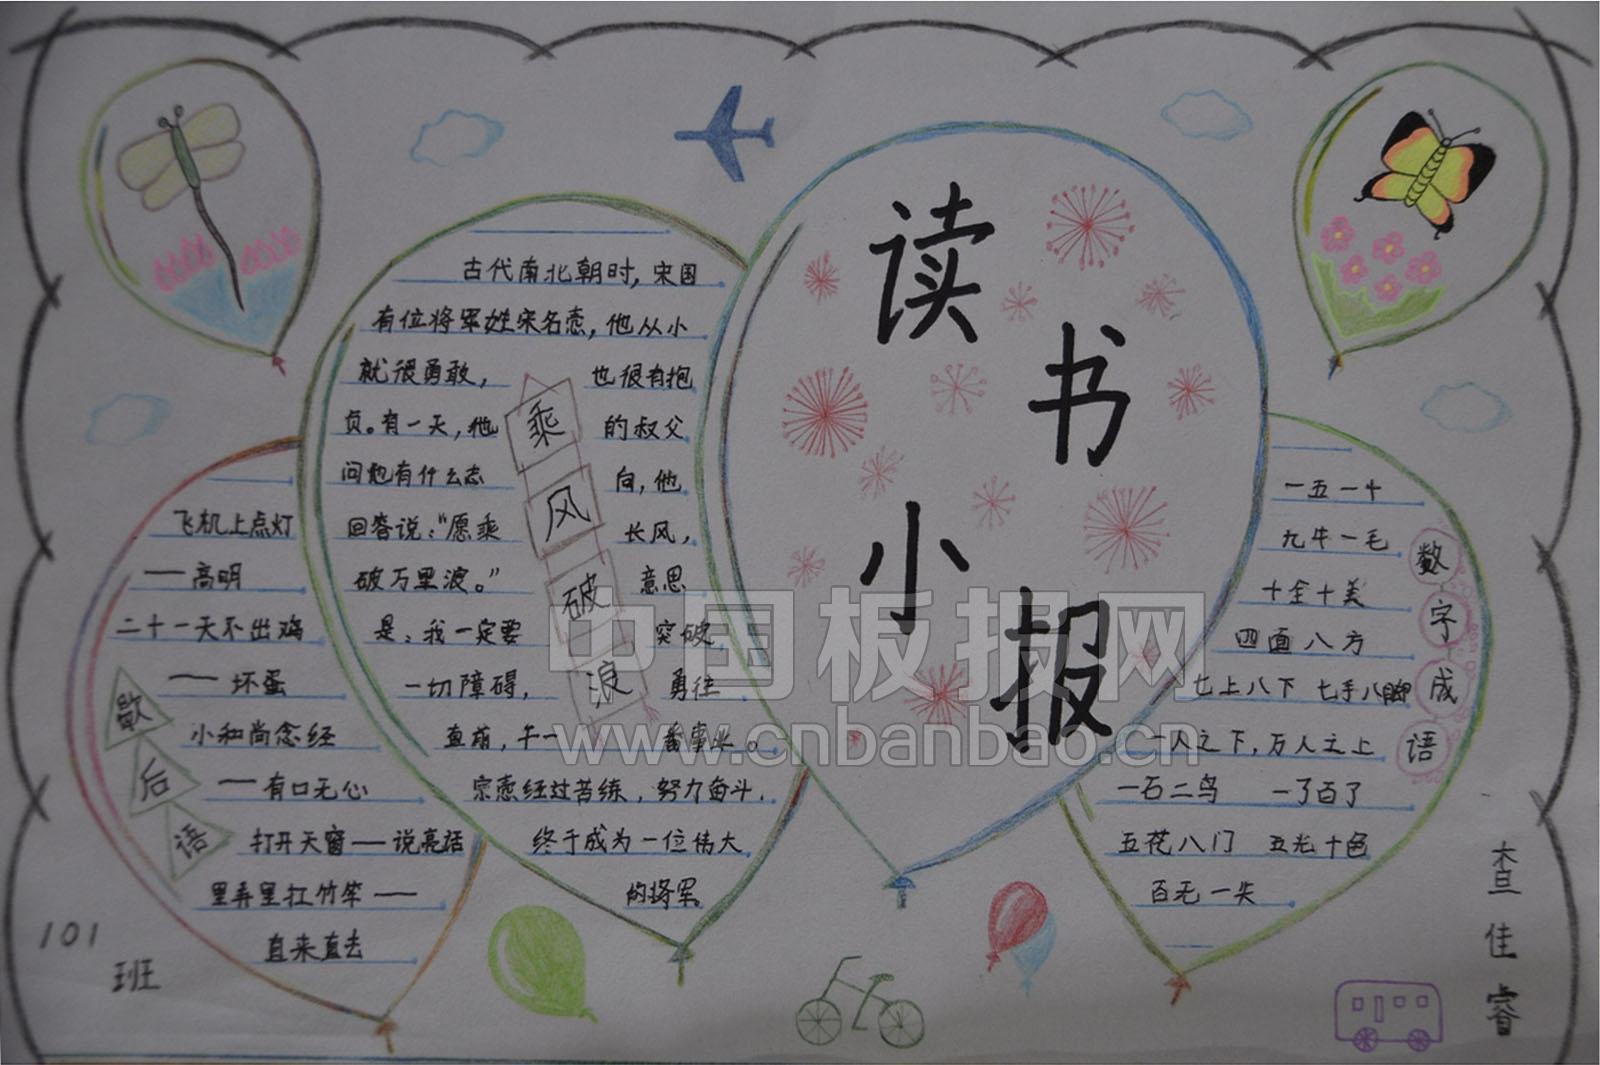 读书小报
古代南北朝时，宋国
有位将军姓宋名悫，他从小
就很勇敢，也很有抱
负。有一天，他的叔父
问他有什么志向，他
回答说：“愿乘长风，
破万里浪。”意思
是：我一定要突破
一切障碍，勇往
直前，干一番事业。
宗悫经过苦练，努力奋斗，
终于成为一位伟大
的将军。
乘
风
破
浪
飞机上点灯
——高明
二十一天不出鸡
——坏蛋
小和尚念经
——有口无心
打开天窗——说亮话
里弄里扛竹竿——
直来直去
歇
后
语
一五一十
九牛一毛
十全十美
四面八方
七上八下 七手八脚
一人之下，万人之上
一石二鸟 一了百了
五花八门 五光十色
百无一失
数
字
成
语
101
班
查
佳
睿
中国板报网
www.cnbanbao.cn